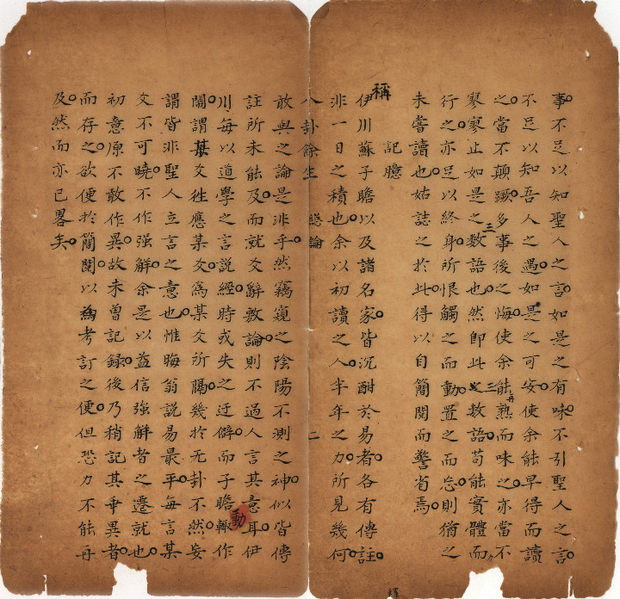 事不足以知聖人之言如是之有味不引聖人之言
不足以知吾人之遇如是之可安使余能早得而讀
之當不顛躓多事後之悔使余能再熟而味之亦當不
寥寥止如是之三數語也然即此三數語苟能實體而
行之亦足以終身所恨觸之而動置之而忘則猶之
未嘗讀也姑誌之於此得以自簡閱而警省焉
記臆
稱
伊川蘇子瞻以及諸名家皆沉酣於易者各有傳註
非一日之積也余以初讀之人半年之力所見幾何
八卦餘生 總論 二
敢與之論是非乎然竊窺之陰陽不測之神似皆傳
註所未能及而就爻辭數論則不過人言其意耳伊
川每以道學之言說經時或失之迂僻而子瞻輙作
鬧謂某爻徃應某爻為某爻所隔幾於無卦不然妄
動
謂皆非聖人立言之意也惟晦翁說易最平每言某
文不可曉不作强解余是以益信強解者之遷就也
初意原不敢作異故未曾記録後乃稍記其爭異者
而存之欲便於簡閱以為考訂之便但恐力不能再
及然而亦已畧矣